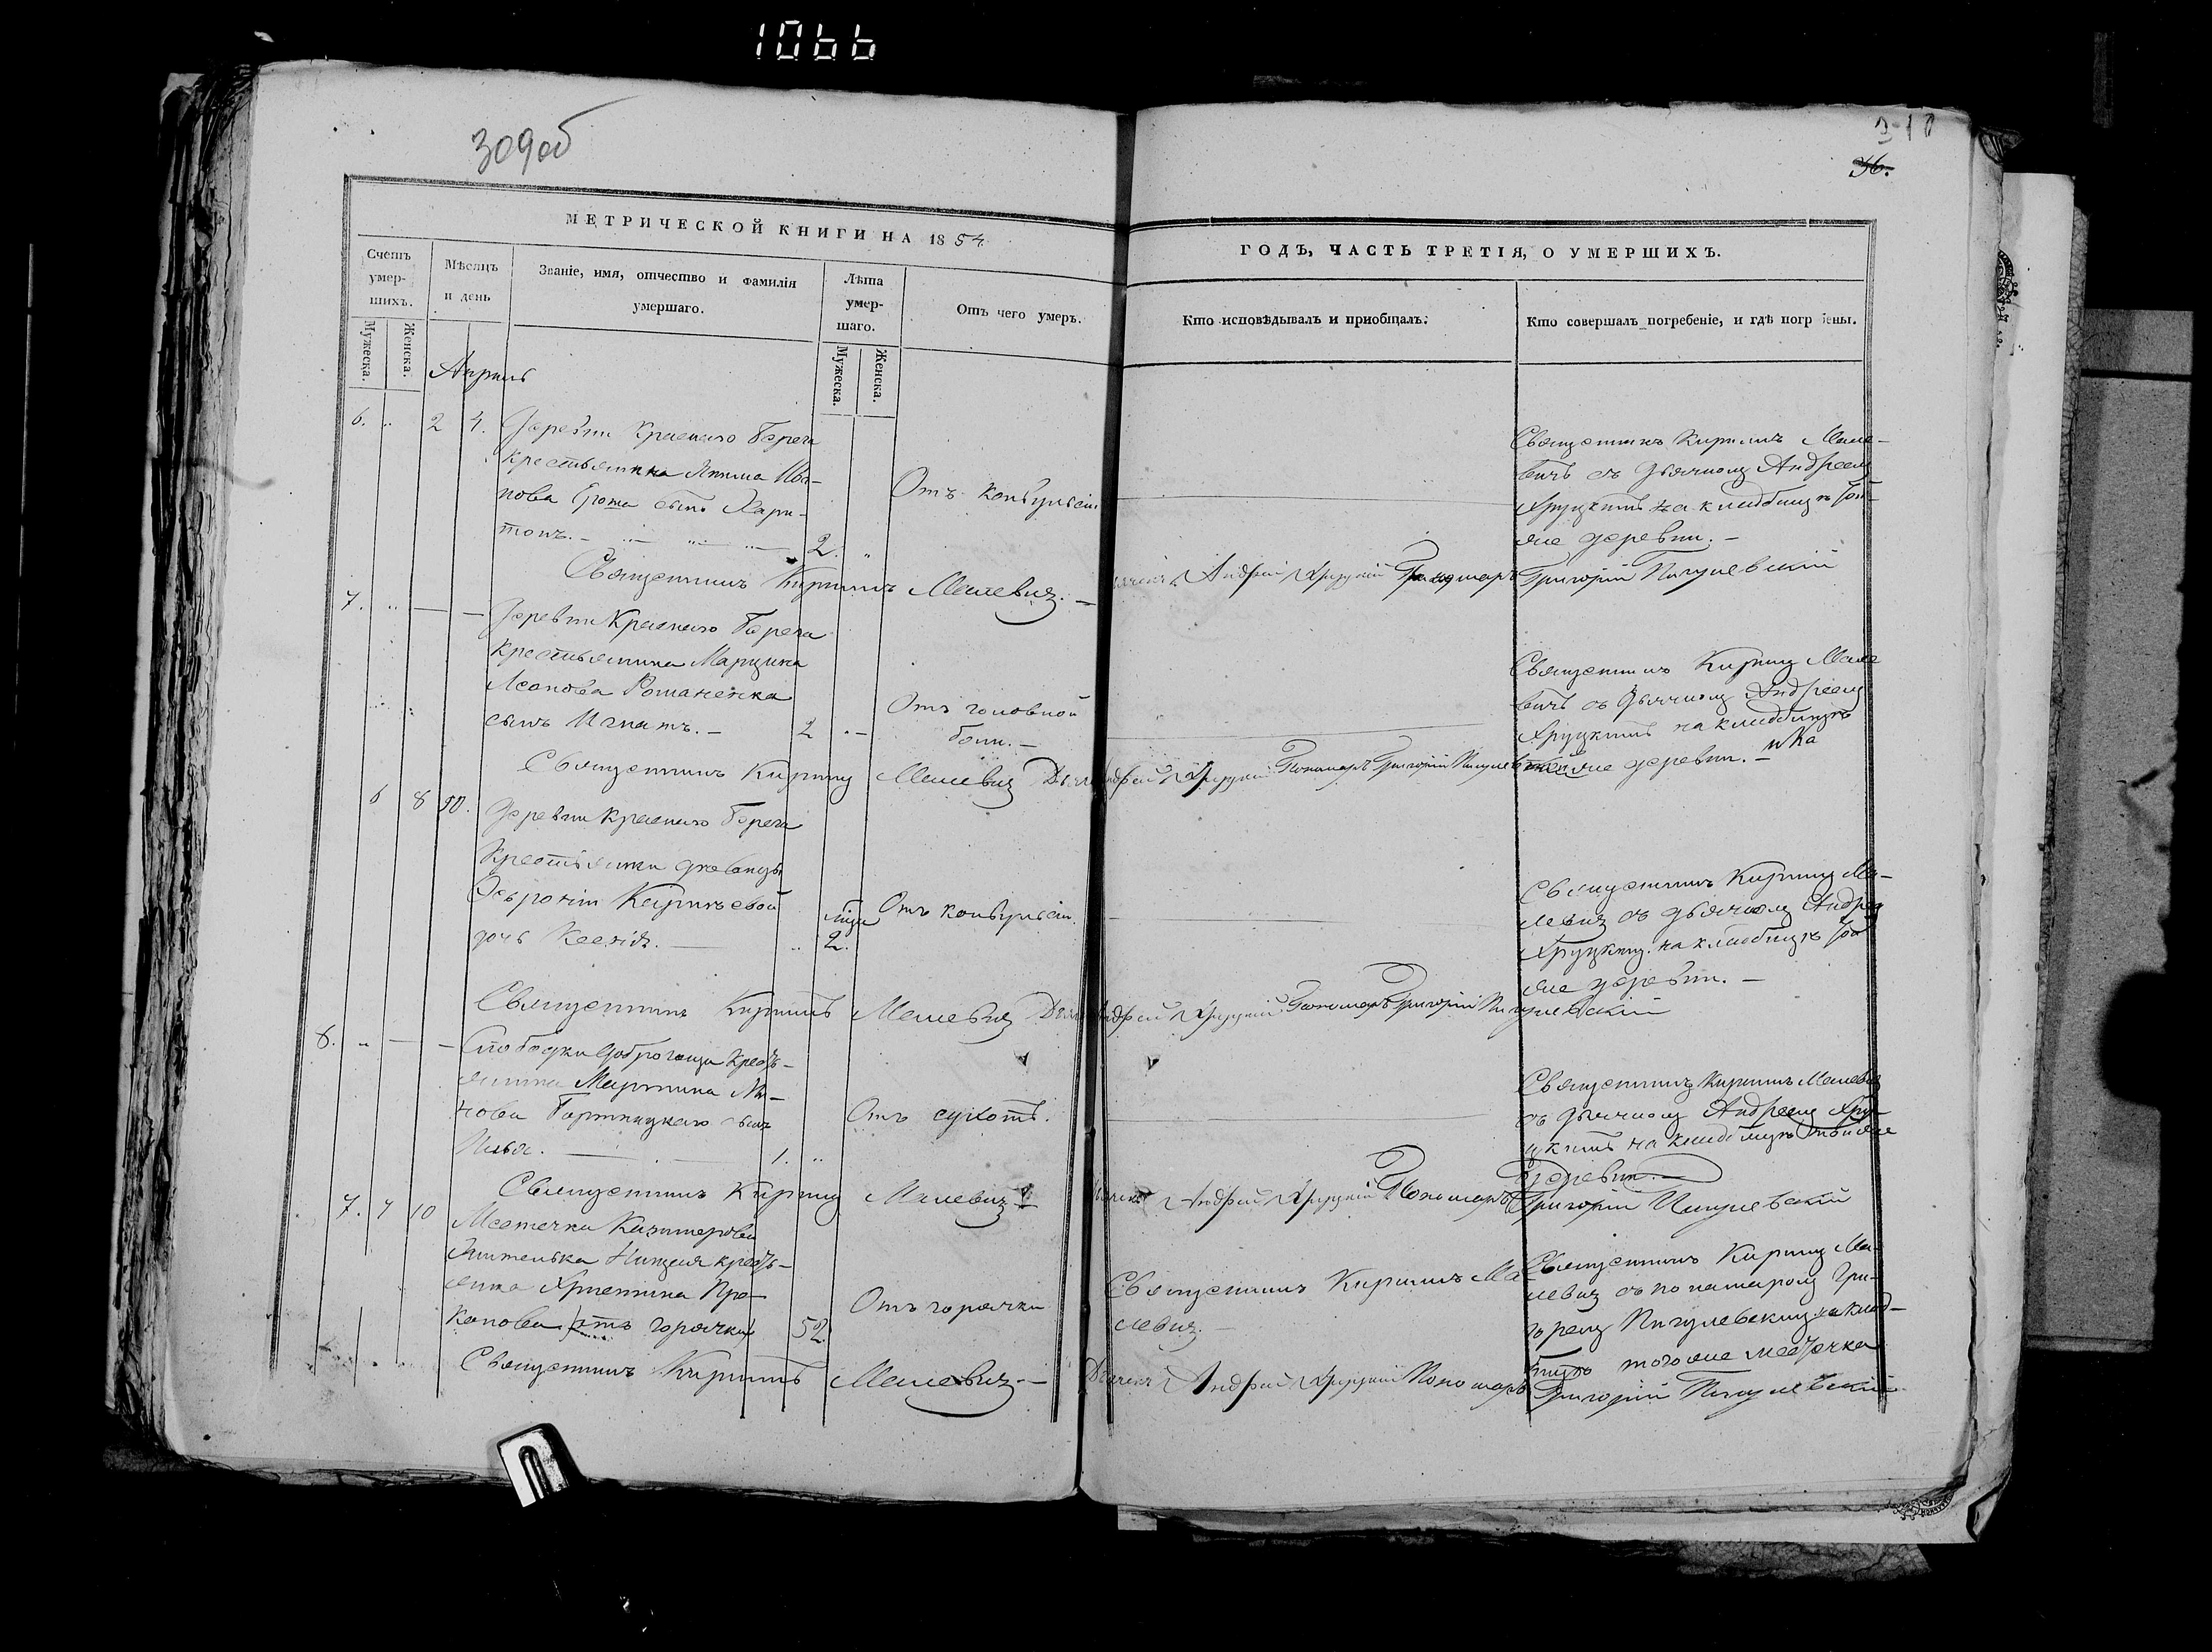 1066
309об
310
36.
МЕТРИЧЕСКОЙ КНИГИ НА 1854
ГОДЪ, ЧАСТЬ ТРЕТІЯ, О УМЕРШИХЪ.
Счетъ умер-шихъ.
Мужеска.
Женска.
Мѣсяцъ и день
Званіе, имя, отчество и фамилія умершаго.
Лѣта умер-шаго.
Мужеска.
Женска.
Отъ чего умеръ.
Кто исповѣдывалъ и приобщалъ.
Кто совершалъ погребеніе, и гдѣ погр бены.
Апрель
6. 2 4. Деревни Краснаго Берега
крестьянина Якима Ива-
нова сынъ Хари-
тонъ. 2.
Отъ конвульсіи
Священникъ Кириллъ Мале-
вичъ съ дьячкомъ Андреемъ
Хруцкимъ на кладбищѣ той
же деревни.
Священникъ Кириллъ Малевичъ. Андрей Хруцкій Григорій Пигулевскій
7. Деревни Краснаго Берега
крестьянина Марцина
Романенка
сынъ Игнатъ. 2
Отъ головной
боли.
Священникъ Кириллъ Мале
вичъ съ дьячкомъ Андреемъ
Хруцкимъ на кладбищѣ
же деревни.
Священникъ Кириллъ Малевичъ Андрей Хруцкій Пономарь Григорій
6 8 10. Деревни Краснаго Берега
Крестьянки девицы
дочь Ксенія. 2.
Отъ конвульсіи.
Священникъ Кириллъ Ма-
левичъ съ дьячкомъ Андрее
Хруцкимъ на кладбищѣ той
же деревни.
Священникъ Кириллъ Малевичъ Андрей Хруцкій Пономарь Григорій Пигулевскій
8. Слободки Доброгоща крестъ-
янина Мартина
сынъ
Илья. 1.
Отъ сухотъ.
Священникъ Кириллъ Малевичъ
съ дьячкомъ Андреемъ Хру-
цкимъ на кладбищѣ той же
деревни.
Священникъ Кириллъ Малевичъ Андрей Хруцкій Пономарь Григорій Пигулевскій
7. 7 10 Местечка Казимерова
жителька крестъ-
янка Христина Про-
копова отъ горячки 52
Отъ горячки
Священникъ Кириллъ Ма
левичъ.
Священникъ Кириллъ Ма-
левичъ съ пономаромъ Гри-
горемъ Пигулевскимъ на клад-
бищѣ того же местечка
Священникъ Кириллъ Малевичъ. Дьячекъ Андрей Хруцкій Пономарь Григорій Пигулевскій